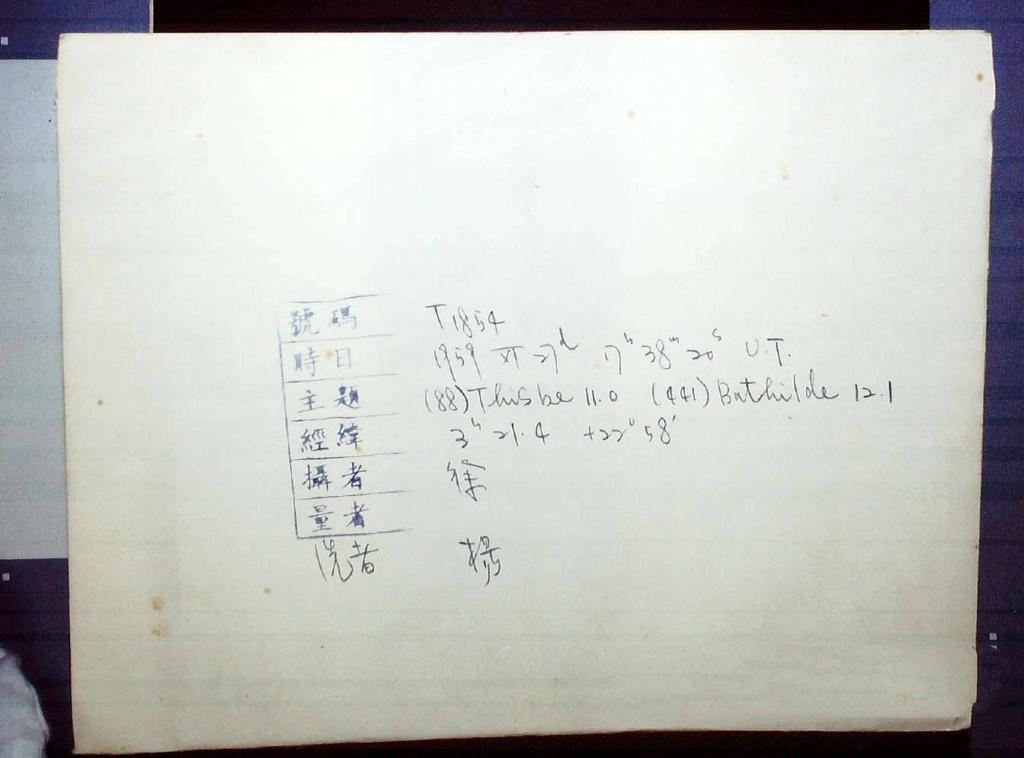 號碼 T1854
時日 1959 XI 27d 17h 38m 20s U.T.
主題 (88) Thisbe 11.0 (441) Bathilde 12.1
經緯 3h 21.4 +22° 58'
攝者 徐
量者
洗者 楊